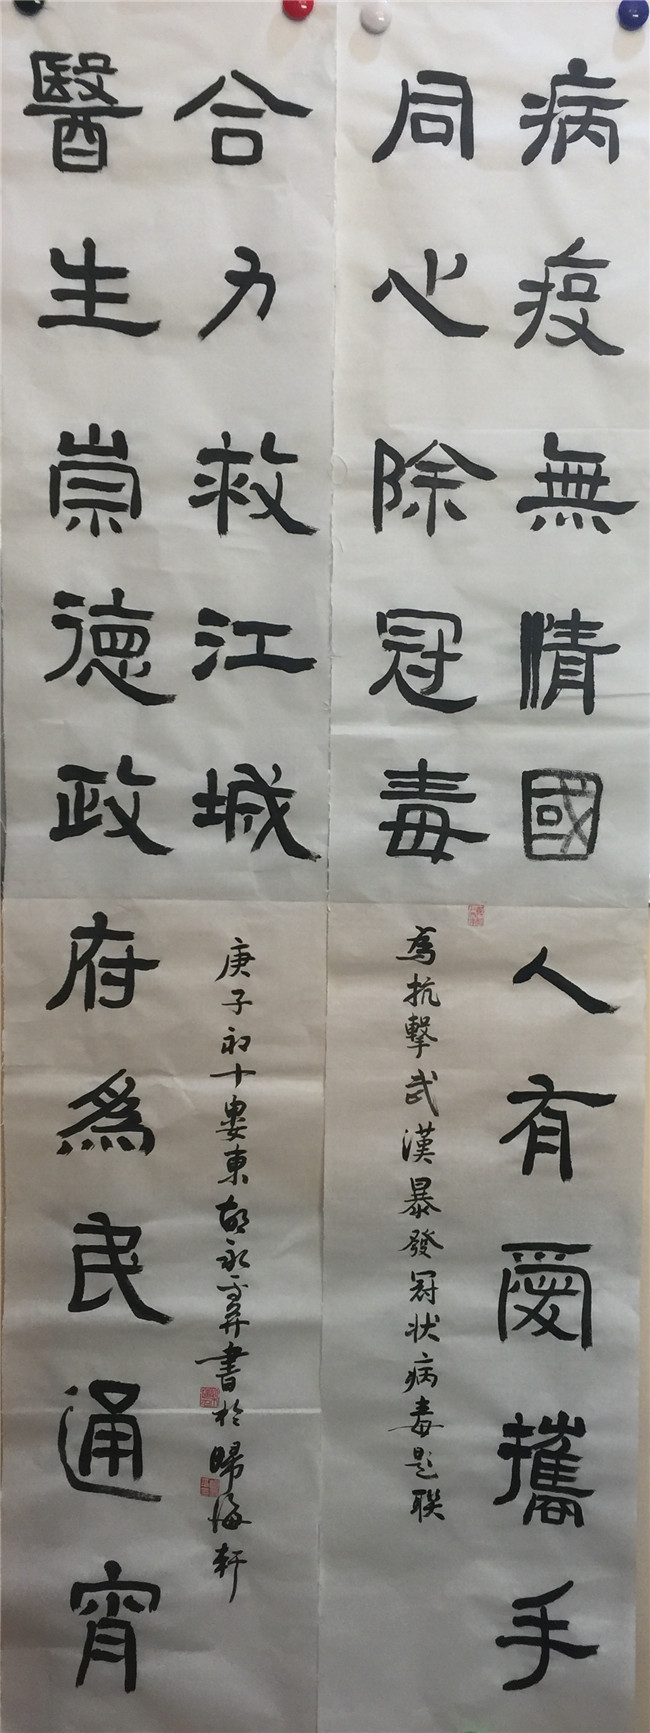 病疫無情國人有愛攜手
同心除冠毒
為抗擊武漢暴發冠狀病毒題聯
醫生崇德政府為民通宵
合力救江城
庚子初十婁東胡永平并書於歸海軒